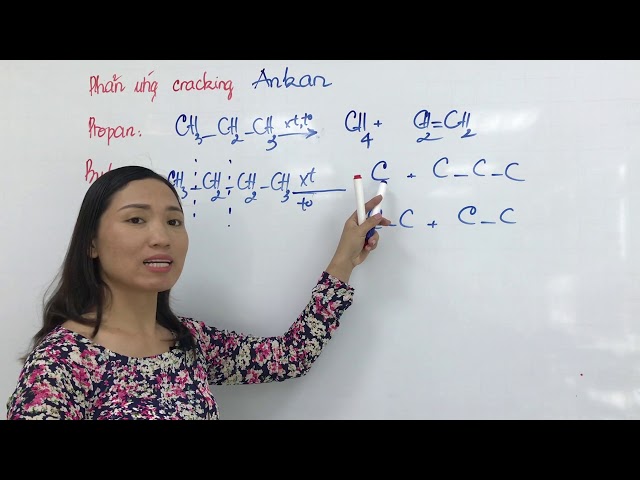 Phản ứng cracking Ankan
Propan: CH3_CH2_CH3 xt,to CH4 + CH2=CH2
CH3-CH2-CH2-CH3 xt to C + C_C_C
C_C + C_C